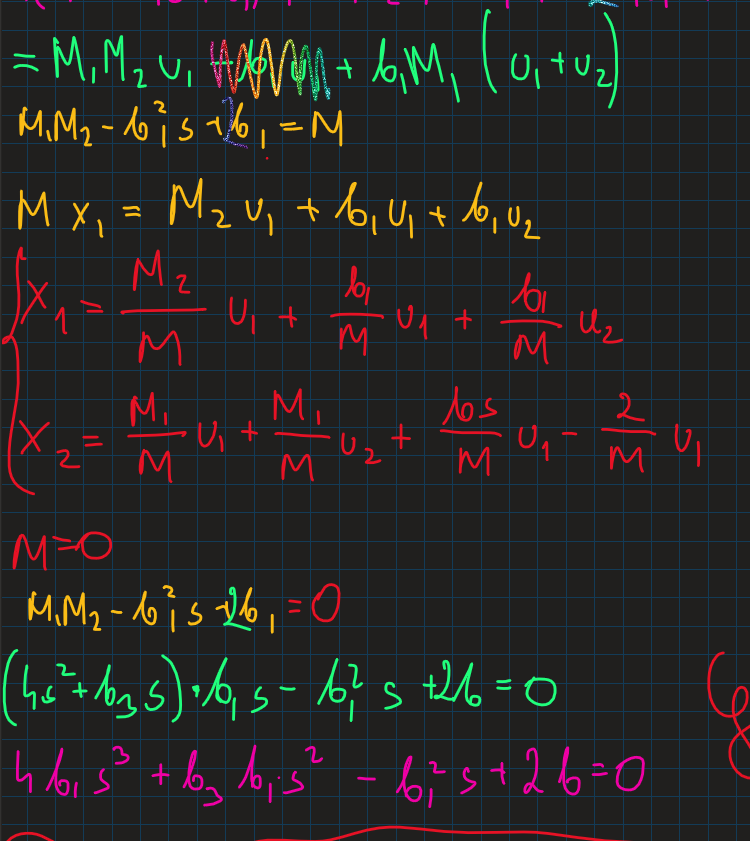 = M₁M₂ u₁ + b₁M₁ (u₁ + u₂)
M₁M₂ - b₁² s + 2b₁ = M
M x₁ = M₂ u₁ + b₁ u₁ + b₁ u₂
x₁ = M₂/M u₁ + b₁/M u₁ + b₁/M u₂
x₂ = M₁/M u₁ + M₁/M u₂ + bs/M u₁ - 2/M u₁
M = 0
M₁M₂ - b₁² s + 2b₁ = 0
(4s² + b₃ s) · b₁ s - b₁² s + 2b = 0
4b₁ s³ + b₃ b₁ · s² - b₁² s + 2b = 0